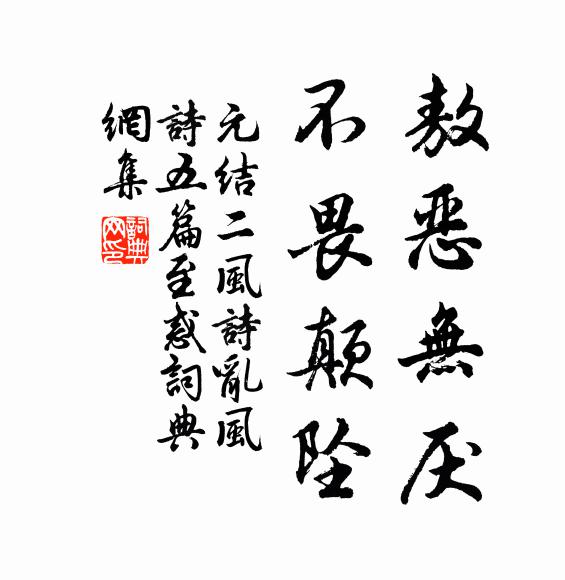 敖惡無厌
不畏顛墜
元结二風詩亂風
詩五篇至惑詞典
網集
詞典網印